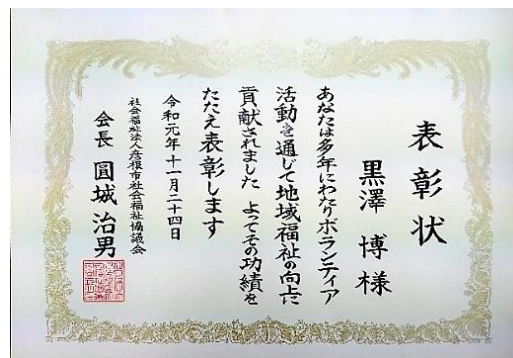 表彰状
黒澤 博 様
あなたは多年にわたりボランティア
活動を通じて地域福祉の向上に
貢献されました よってその功績を
たたえ表彰します
令和元年十一月二十四日
社会福祉法人彦根市社会福祉協議会
会長 圓城 治男